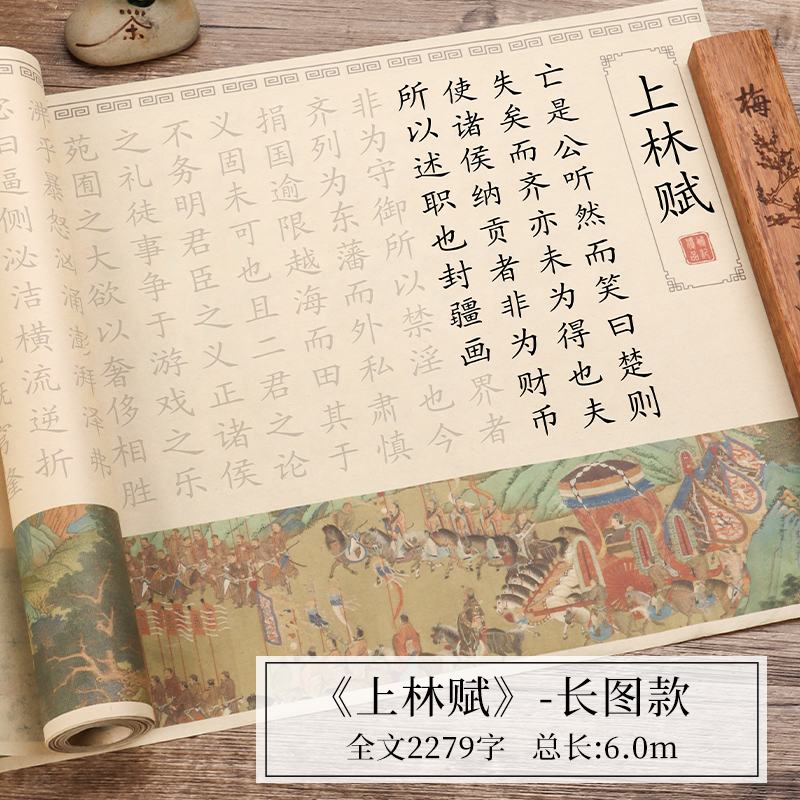 茶
梅
上林赋
亡是公听然而笑曰楚则
失矣而齐亦未为得也夫
使诸侯纳贡者非为财币
所以述职也封疆画界者
非为守御所以禁淫也今
齐列为东藩而外私肃慎
捐国逾限越海而田其于
义固未可也且二君之论
不务明君臣之义正诸侯
之礼徒事争于游戏之乐
苑囿之大欲以奢侈相胜
沸乎暴怒汹涌澎湃泽弗
宓曰逼侧泌洁横流逆折
《上林赋》-长图款
全文2279字 总长:6.0m